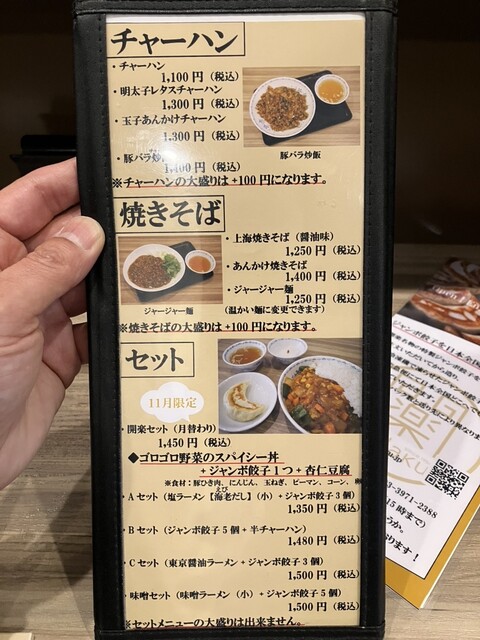 チャーハン
・チャーハン
1,100円（税込）
・明太子レタスチャーハン
1,300円（税込）
・玉子あんかけチャーハン
1,300円（税込）
・豚バラ炒飯
1,400円（税込）
豚バラ炒飯
※チャーハンの大盛りは+100円になります。
焼きそば
・上海焼きそば（醤油味）
1,250円（税込）
・あんかけ焼きそば
1,400円（税込）
・ジャージャー麺
1,250円（税込）
ジャージャー麺
（温かい麺に変更できます）
※焼きそばの大盛りは+100円になります。
セット
11月限定
・開楽セット（月替わり）
1,450円（税込）
◆ゴロゴロ野菜のスパイシー丼
+ジャンボ餃子1つ+杏仁豆腐
※食材：豚ひき肉、にんじん、玉ねぎ、ピーマン、コーン、
えび
・Aセット（塩ラーメン【海老だし】（小）+ジャンボ餃子3個）
1,350円（税込）
・Bセット（ジャンボ餃子5個+半チャーハン）
1,480円（税込）
・Cセット（東京醤油ラーメン+ジャンボ餃子3個）
1,500円（税込）
・味噌セット（味噌ラーメン（小）+ジャンボ餃子5個）
1,500円（税込）
※セットメニューの大盛りは出来ません。
ジャンボ餃子を日本全国
3-3971-2388
15時まで）
うか。
ります！